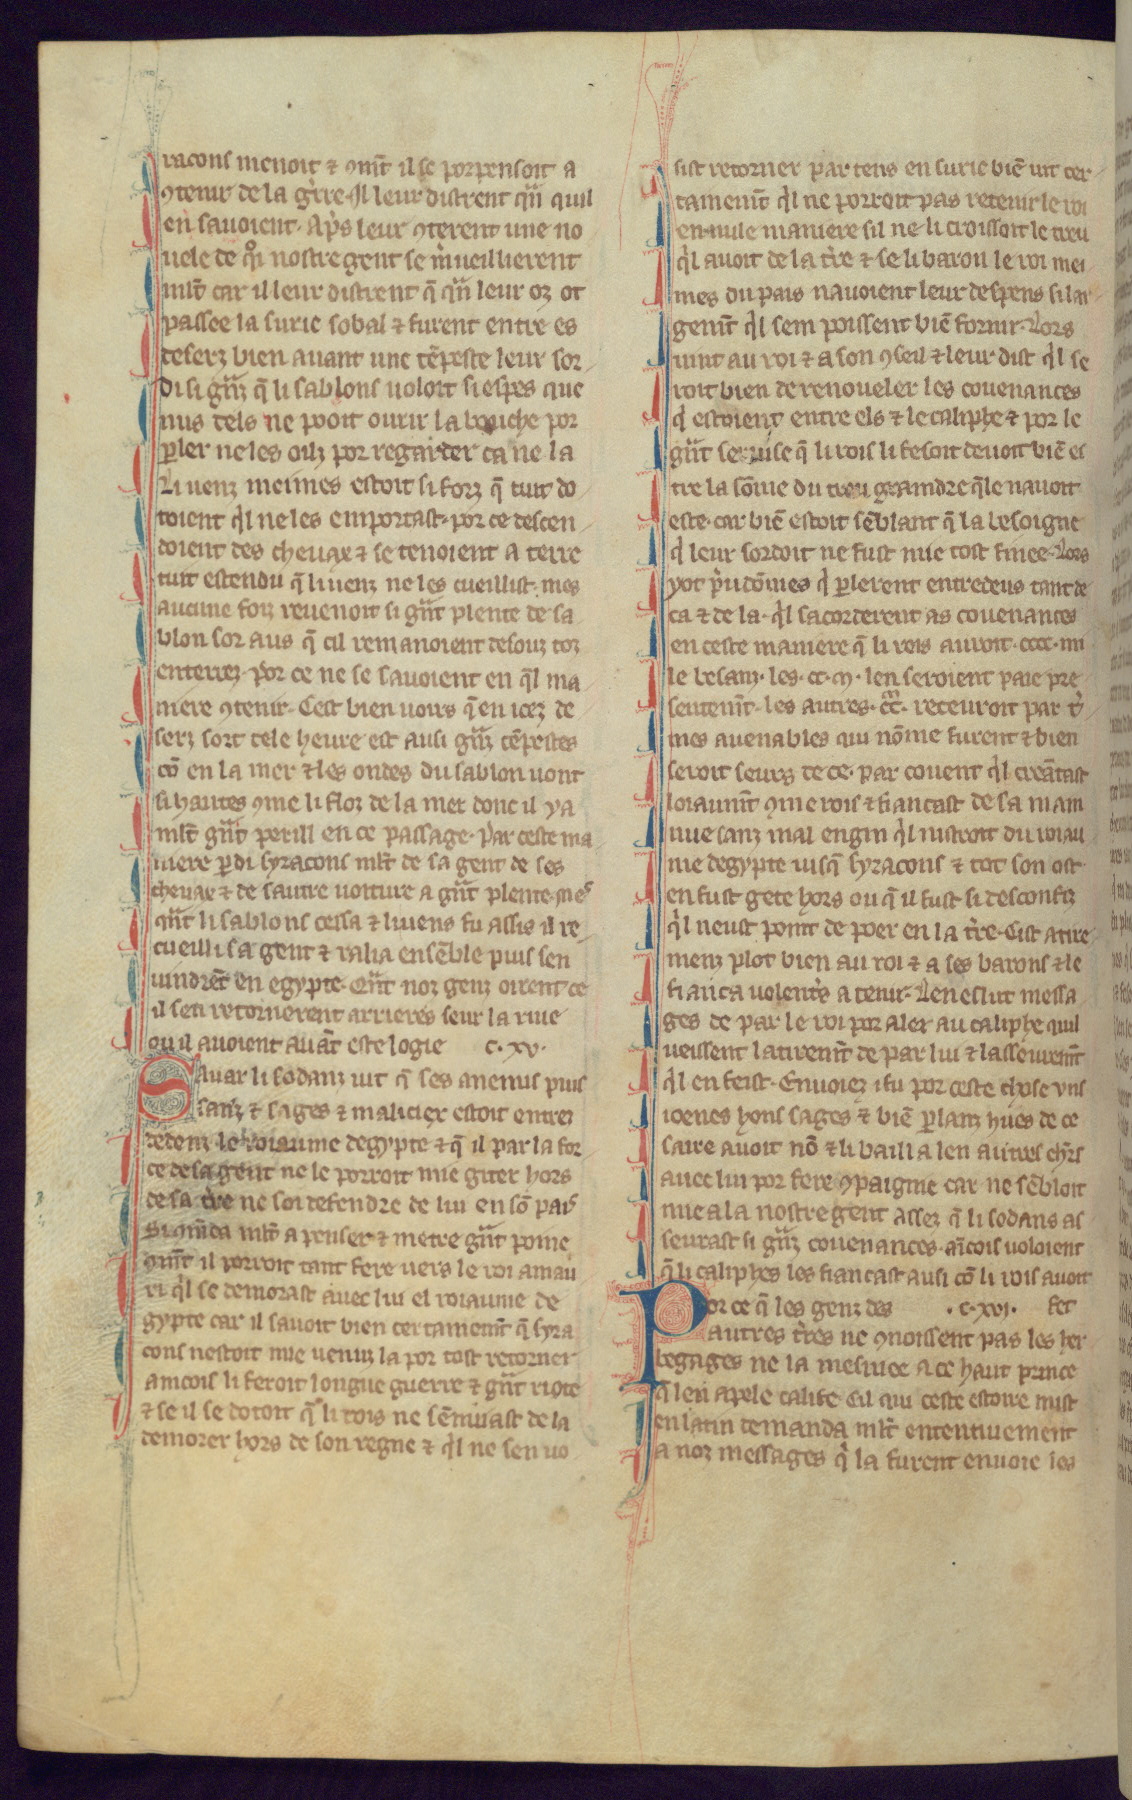 racons menoit ⁊ ꝯmt̃ il se porpensoit a
ꝯtenir de la grre. Il leur distrent qñ quil
en savoient. Aps leur ꝯterent une no
vele de qͦi nostre gent se mͥveillierent
mlt̃ car il leur distrent q̃ qñ leur oz ot
passee la surie sobal ⁊ furent entre es
deserz bien avant une tẽpeste leur sor
di si grãz q̃ li sablons voloit si espes que
nus dels ne pooit ovrir la bouche por
ꝑler ne les oilz por regarder ca ne la
Li venz meimes estoit si forz q̃ tuit do
toient ql ne les emportast. por ce descen
doient des chevax ⁊ se tenoient a terre
tuit estendu q̃ li venz ne les cueillist. mes
aucune foiz revenoit si gñt plente de sa
blon sor aus q̃ cil remanoient desouz toz
enterrez. por ce ne se savoient en ql ma
niere ꝯtenir. Cest bien voirs q̃ en icez de
serz sort tele heure est ausi grãz tẽpestes
cõ en la mer ⁊ les ondes du sablon vont
si hautes ꝯme li floz de la mer donc il ya
mlt̃ gñt perill en ce passage. Par ceste ma
niere ꝑdi syracons mlt̃ de sa gent de ses
chevax ⁊ de sautre voiture a gñt plente. mes
qñt li sablons cessa ⁊ li vens fu assis il re
cueilli sa gent ⁊ ralia ensẽble puis sen
vindrẽt en egypte. Qñt noz genz oirent ce
il sen retornerent arrieres seur la rive
ou il avoient avãt este logie c. xv.
Savar li sodanz vit q̃ ses anemis puis
sanz ⁊ sages ⁊ malicier estoit entrez
dedenz le roiaume degypte ⁊ q̃ il par la for
ce de sa gent ne le porroit mie giter hors
de sa tre ne soi defendre de lui en sõ pais
Si ꝯmẽca mlt̃ a penser ⁊ metre gñt poine
ꝯmt̃ il porroit tant fere vers le roi amau
ri ql se demorast avec lui el roiaume de
gypte car il savoit bien certainemt̃ q̃ syra
cons nestoit mie venuz la por tost retorner
aincois li feroit longue guerre ⁊ gñt riote
⁊ se il se dotoit q̃ li rois ne sẽnuiast de la
demorer hors de son regne ⁊ ql ne sen vo
sist retorner par tens en surie biẽ vit cer
tainemt̃ ql ne porroit pas retenir le roi
en nule maniere sil ne li croissoit le treu
ql avoit de la tre ⁊ se li baron le roi mei
mes du pais navoient leur despens si lar
gemt̃ ql sem poissent biẽ fornir. Lors
vint au roi ⁊ a son ꝯseil ⁊ leur dist ql se
roit bien de renoveler les covenances
q estoient entre els ⁊ le caliphe ⁊ por le
gñt servise q̃ li rois li fesoit devoit biẽ es
tre la sõme du treu graindre qle navoit
este. car biẽ estoit sẽblant q̃ la besoigne
q leur sordoit ne fust mie tost finee. Lors
yot prudõmes q ꝑlerent entredeus tant de
ca ⁊ de la. ql sacorderent as covenances
en ceste maniere q̃ li rois auroit. cccc. mi
le besanz. les. cc. m. len seroient paie pre
sentemt̃. les autres. cc. receuroit par ter
mes avenables qui nõme furent ⁊ bien
seroit seurs de ce. par covent ql creãtast
loiaumt̃ ꝯme rois ⁊ fiancast de sa main
nue sanz mal engin ql nistroit du roiau
me degypte iusq̃ syracons ⁊ tot son ost
en fust gete hors ou q̃ il fust si desconfiz
ql neust point de poer en la tre. Cist atire
menz plot bien au roi ⁊ a ses barons ⁊ le
fianca volentrs a tenir. Len eslut messa
ges de par le roi por aler au caliphe quil
veissent latiremt̃ de par lui ⁊ lasseuremt̃
ql en feist. Envoiez i fu por ceste chose vns
ioenes hons sages ⁊ biẽ ꝑlanz hues de ce
saire avoit nõ ⁊ li bailla len autres chrs
avec lui por fere ꝯpaignie car ne sẽbloit
mie a la nostre gent assez q̃ li sodans as
seurast si grãz covenances. aĩcois voloient
q̃ li caliphes les fiancast ausi cõ li rois avoit
Por ce q̃ les genz des . c. xvi. fet
autres tres ne ꝯnoissent pas les her
begages ne la mesniee a ce haut prince
q̃ len apele calife. Cil qui ceste estoire mist
en latin demanda mlt̃ ententivement
a noz messages q la furent envoie les